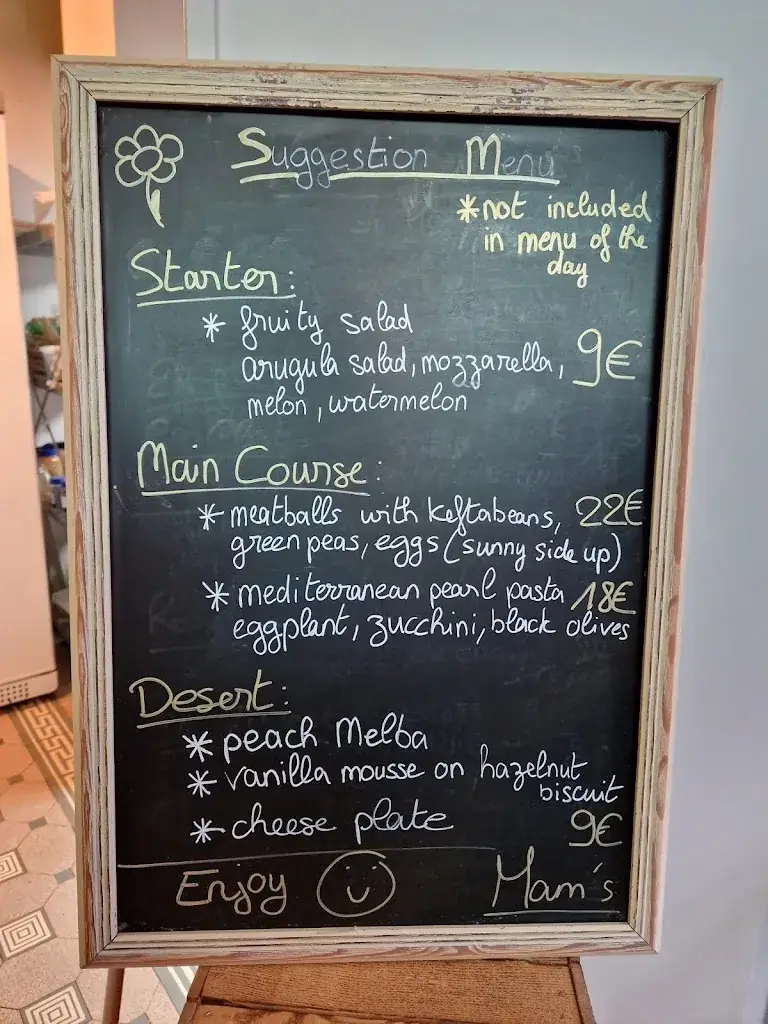 Suggestion Menu
*not included
in menu of the
day
Starter:
* fruity salad
arugula salad, mozzarella, 9€
melon, watermelon
Main Course:
* meatballs with keftabeans, 22€
green peas, eggs (sunny side up)
* mediterranean pearl pasta 18€
eggplant, zucchini, black olives
Desert:
* peach Melba
* vanilla mousse on hazelnut
biscuit
* cheese plate 9€
Enjoy Mam's